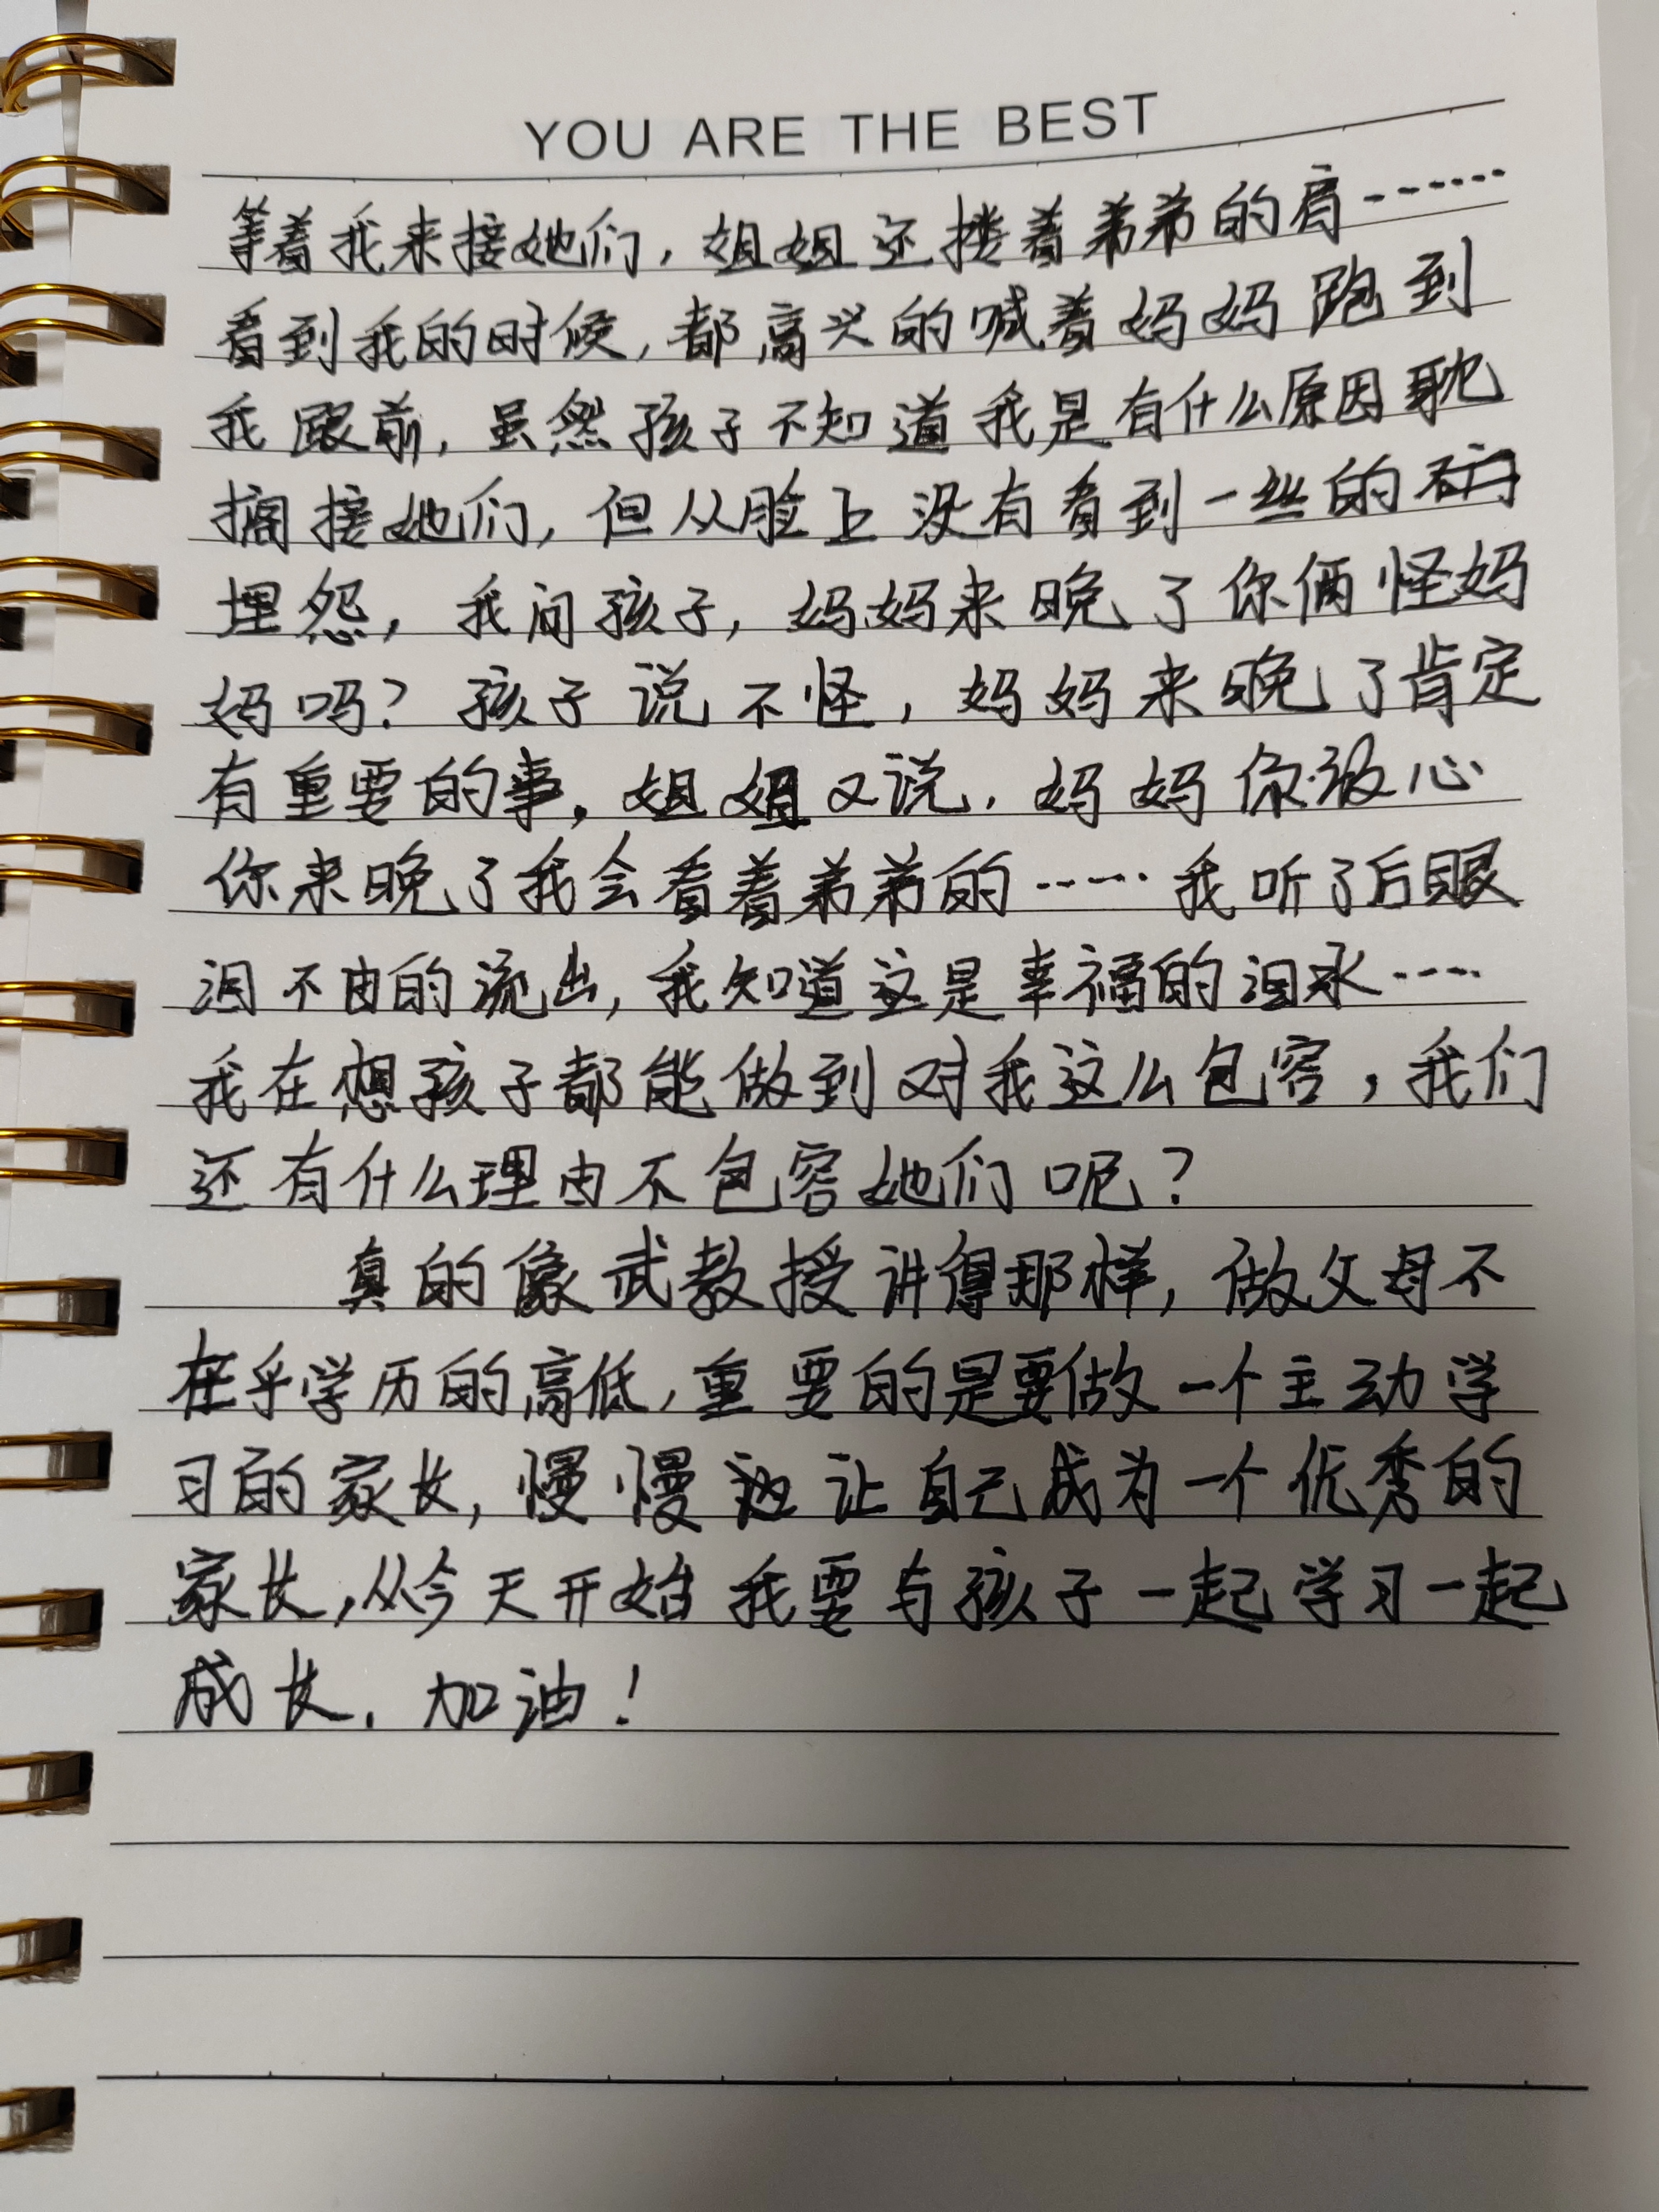 YOU ARE THE BEST
等着我来接她们，姐姐还搂着弟弟的肩……
看到我的时候，都高兴的喊着妈妈跑到
我跟前，虽然孩子不知道我是有什么原因耽
搁接她们，但从脸上没有看到一丝的
埋怨，我问孩子，妈妈来晚了你俩怪妈
妈吗？孩子说不怪，妈妈来晚了肯定
有重要的事。姐姐又说，妈妈你放心
你来晚了我会看着弟弟的……我听了后眼
泪不由的流出，我知道这是幸福的泪水……
我在想孩子都能做到对我这么包容，我们
还有什么理由不包容她们呢？
真的像武教授讲得那样，做父母不
在乎学历的高低，重要的是要做一个主动学
习的家长，慢慢让自己成为一个优秀的
家长，从今天开始我要与孩子一起学习一起
成长，加油！